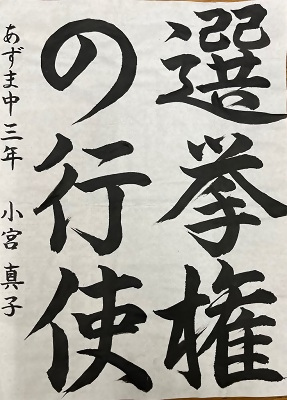 選挙権
の行使
あずま中三年 小宮真子